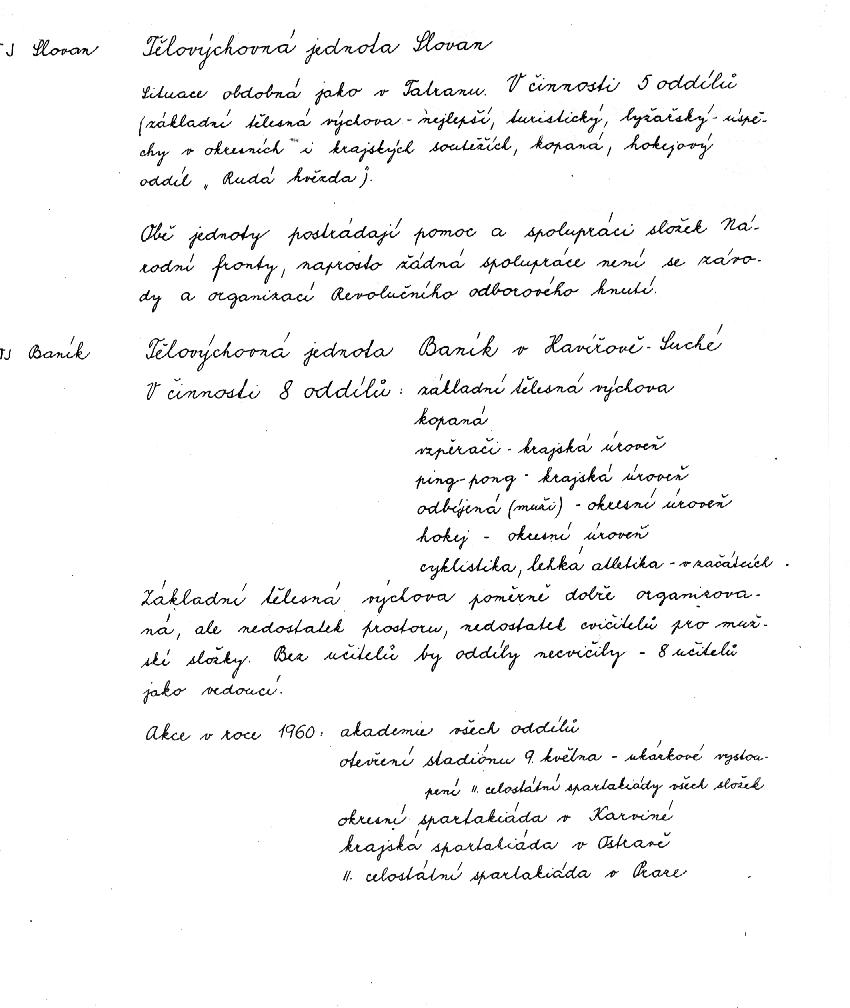 TJ Slovan
Tělovýchovná jednota Slovan
Situace obdobná jako v Tatranu. V činnosti 5 oddílů
(základní tělesná výchova - nejlepší, turistický, lyžařský - úspě-
chy v okresních i krajských soutěžích, kopaná, hokejový
oddíl „Rudá hvězda).
Obě jednoty postrádají pomoc a spolupráci složek Ná-
rodní fronty, naprosto žádná spolupráce není se závo-
dy a organizací Revolučního odborového hnutí.
TJ Baník
Tělovýchovná jednota Baník v Havířově-Suché
V činnosti 8 oddílů: základní tělesná výchova
kopaná
vzpěrači - krajská úroveň
ping-pong - krajská úroveň
odbíjená (muži) - okresní úroveň
hokej - okresní úroveň
cyklistika, lehká atletika - v začátcích.
Základní tělesná výchova poměrně dobře organizova-
ná, ale nedostatek prostoru, nedostatek cvičitelů pro muž-
ské složky. Bez učitelů by oddíly necvičily - 8 učitelů
jako vedoucí.
Akce v roce 1960: akademie všech oddílů
otevření stadiónu 9. května - ukázkové vystou-
pení II. celostátní spartakiády všech složek
okresní spartakiáda v Karviné
krajská spartakiáda v Ostravě
II. celostátní spartakiáda v Praze